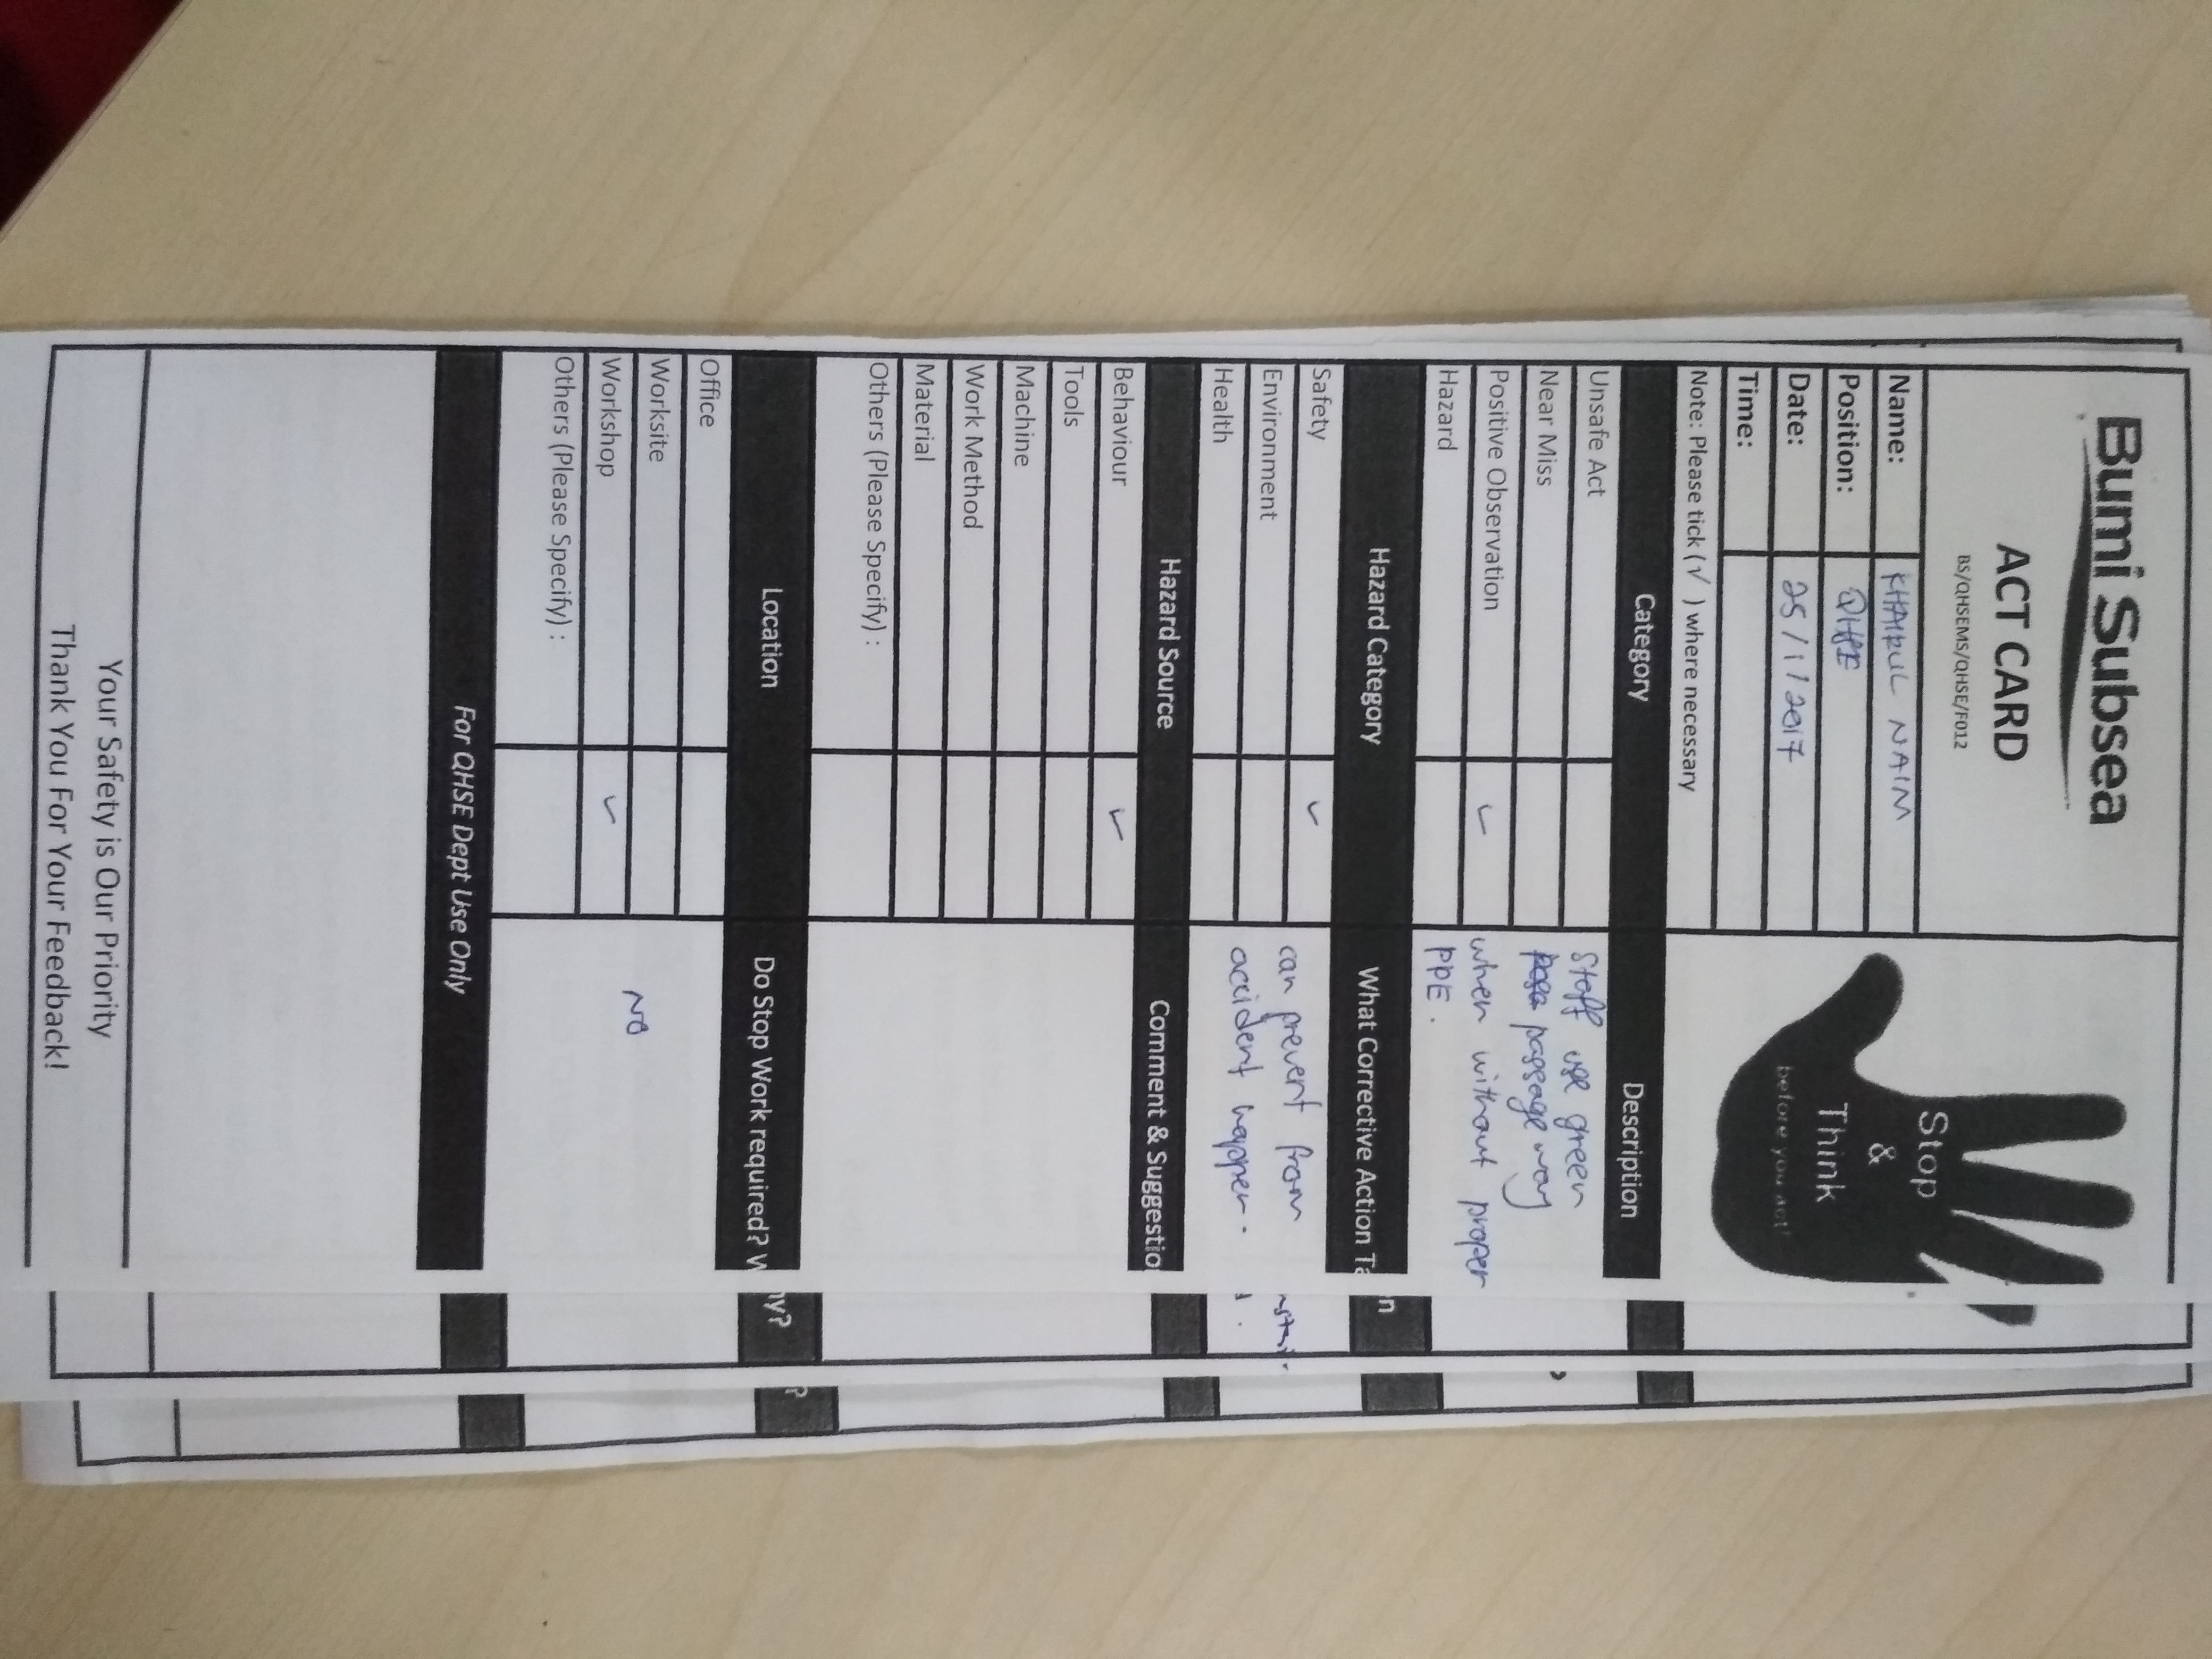 Bumi Subsea
ACT CARD
BS/QHSEMS/QHSE/F012
Stop
&
Think
before you act!
Name: KHAIRUL NAIM
Position: QHSE
Date: 25/1/2017
Time:
Note: Please tick (√ ) where necessary
Category Description
Unsafe Act
Near Miss
Positive Observation ✓
Hazard
Staff use green
passage way
when without proper
PPE.
Hazard Category What Corrective Action Ta
n
Safety ✓
Environment
Health
can prevent from
accident happen.
Hazard Source Comment & Suggestio
Behaviour ✓
Tools
Machine
Work Method
Material
Others (Please Specify) :
Location Do Stop Work required? W
hy?
?
Office
Worksite
Workshop ✓
Others (Please Specify) :
NO
For QHSE Dept Use Only
Your Safety is Our Priority
Thank You For Your Feedback!